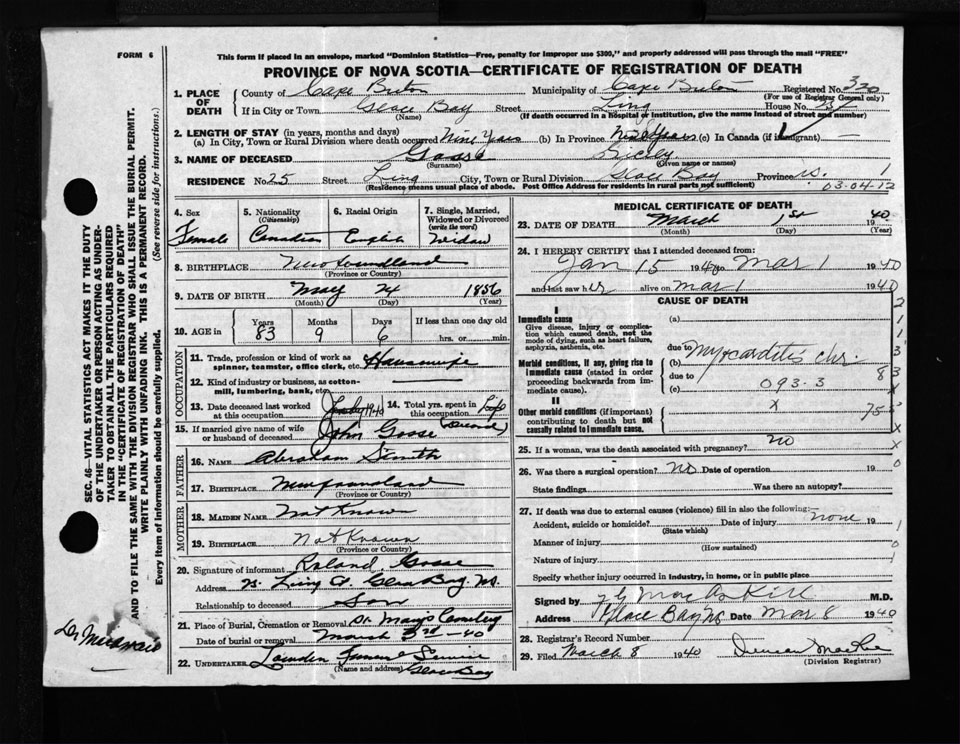 FORM 6
This form if placed in an envelope, marked "Dominion Statistics—Free, penalty for improper use $300," and property addressed will pass through the mail "FREE"
PROVINCE OF NOVA SCOTIA—CERTIFICATE OF REGISTRATION OF DEATH
1. PLACE OF DEATH County of Cape Breton Municipality of Cape Breton Registered No. 330
(For use of Registrar General only)
If in City or Town Glace Bay Street Ling House No.
(Name) (If death occurred in a hospital or institution, give the name instead of street and number)
2. LENGTH OF STAY (in years, months and days)
(a) In City, Town or Rural Division where death occurred Nine Years (b) In Province Nine Years (c) In Canada (if immigrant) —
3. NAME OF DECEASED Goose Sicely
(Surname) (Given name or names)
RESIDENCE No. 25 Street Ling City, Town or Rural Division Glace Bay Province N.S.
(Residence means usual place of abode. Post Office Address for residents in rural parts not sufficient) 03-04-12
4. Sex Female
5. Nationality (Citizenship) Canadian
6. Racial Origin English
7. Single, Married, Widowed or Divorced (write the word) Widow
8. BIRTHPLACE Newfoundland
(Province or Country)
9. DATE OF BIRTH May 24 1856
(Month) (Day) (Year)
10. AGE in Years 83 Months 9 Days 6 If less than one day old hrs. or min.
OCCUPATION
11. Trade, profession or kind of work as spinner, teamster, office clerk, etc. Housewife
12. Kind of industry or business, as cotton-mill, lumbering, bank, etc. —
13. Date deceased last worked at this occupation 1940
14. Total yrs. spent in this occupation Life
15. If married give name of wife or husband of deceased John Goose (Second)
FATHER
16. NAME Abraham Smith
17. BIRTHPLACE Newfoundland
(Province or Country)
MOTHER
18. MAIDEN NAME Not Known
19. BIRTHPLACE Not Known
(Province or Country)
20. Signature of informant Roland Goose
Address 25 Ling St. Glace Bay. N.S.
Relationship to deceased Son
21. Place of Burial, Cremation or Removal St. Mary's Cemetery
Date of burial or removal March 3rd — 40
22. UNDERTAKER Lowden Funeral Service
(Name and address) Glace Bay
MEDICAL CERTIFICATE OF DEATH
23. DATE OF DEATH March 1st 1940
(Month) (Day) (Year)
24. I HEREBY CERTIFY that I attended deceased from:
Jan 15 1940 to Mar 1 1940
and last saw her alive on Mar 1 1940
CAUSE OF DEATH
I
Immediate cause (a)
Give disease, injury or complication which caused death, not the mode of dying, such as heart failure, asphyxia, asthenia, etc.
due to
Morbid conditions, if any, giving rise to immediate cause (stated in order proceeding backwards from immediate cause). (b) Myocarditis chr.
due to
(c) 093-3
II
Other morbid conditions (if important) contributing to death but not causally related to immediate cause. x
25. If a woman, was the death associated with pregnancy? no
26. Was there a surgical operation? No Date of operation 19
State findings Was there an autopsy?
27. If death was due to external causes (violence) fill in also the following:
Accident, suicide or homicide? Date of injury none 19
(State which)
Manner of injury
(How sustained)
Nature of injury
Specify whether injury occurred in industry, in home, or in public place
Signed by M.D.
Address Glace Bay NS Date Mar 8 1940
28. Registrar's Record Number
29. Filed March 8 1940 Duncan MacRae
(Division Registrar)
SEC. 46—VITAL STATISTICS ACT MAKES IT THE DUTY
OF THE UNDERTAKER OR PERSON ACTING AS UNDER-
TAKER TO OBTAIN ALL THE PARTICULARS REQUIRED
IN THE "CERTIFICATE OF REGISTRATION OF DEATH"
AND TO FILE THE SAME WITH THE DIVISION REGISTRAR WHO SHALL ISSUE THE BURIAL PERMIT.
WRITE PLAINLY WITH UNFADING INK. THIS IS A PERMANENT RECORD.
Every item of information should be carefully supplied. (See reverse side for instructions.)